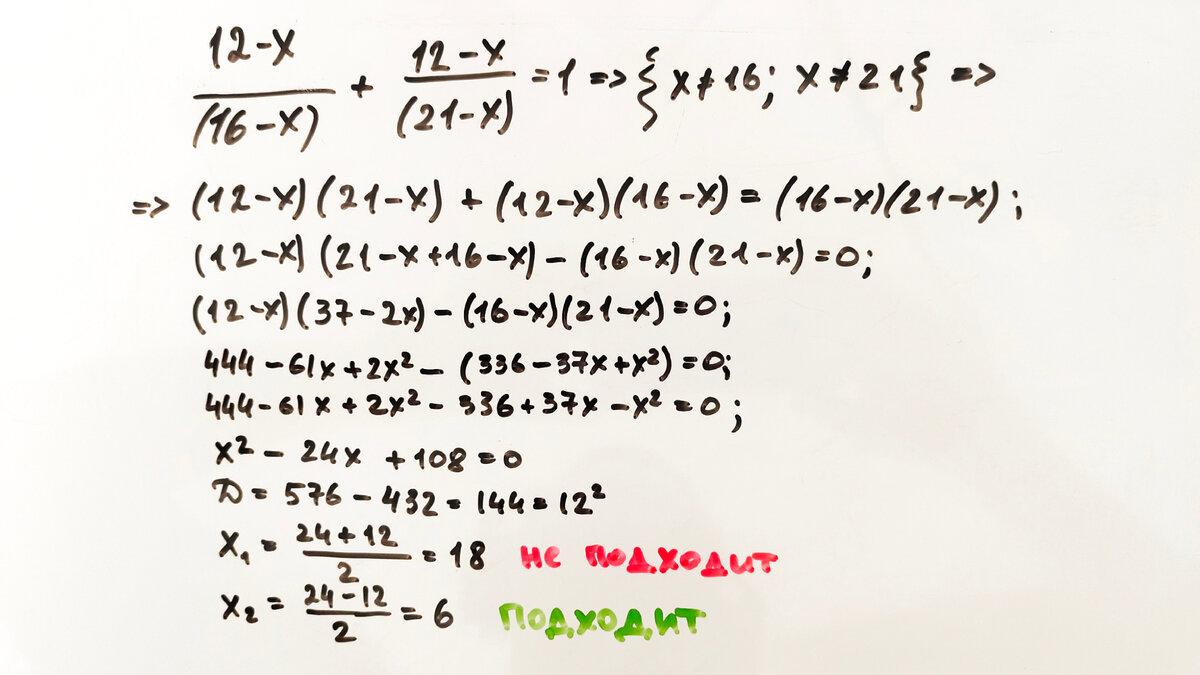 (12-x)/(16-x) + (12-x)/(21-x) = 1 => {x≠16; x≠21} =>
=> (12-x)(21-x) + (12-x)(16-x) = (16-x)(21-x);
(12-x)(21-x+16-x) - (16-x)(21-x) = 0;
(12-x)(37-2x) - (16-x)(21-x) = 0;
444 - 61x + 2x² - (336 - 37x + x²) = 0;
444 - 61x + 2x² - 336 + 37x - x² = 0;
x² - 24x + 108 = 0
D = 576 - 432 = 144 = 12²
x₁ = (24+12)/2 = 18 не подходит
x₂ = (24-12)/2 = 6 подходит